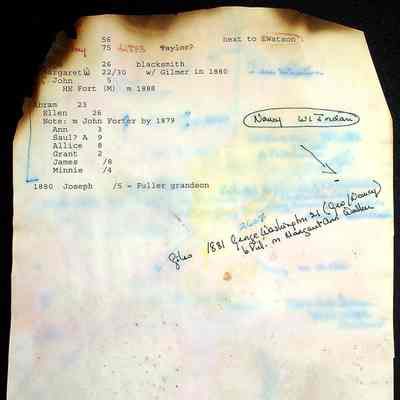 56 next to EWatson
75 Taylor?
26 blacksmith
Margaret W 22/30 w/ Gilmer in 1880
John 5
HE Fort (M) m 1888
Abram 23
Ellen 26
Note: m John Porter by 1879
Ann 3
Saul? A 9
Allice 8
Grant 2
James /8
Minnie /4
Nancy
1880 Joseph /5 - Fuller grandson
2607
Giles 1881 George Washington 21 (Geo/Nancy)
to Pul. m Margaret Ann Walker